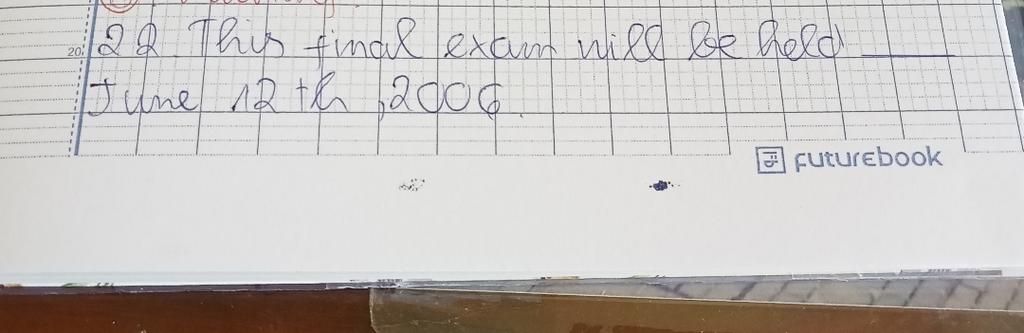 20
22 This final exam will be held ____
June 12th, 2006.
futurebook